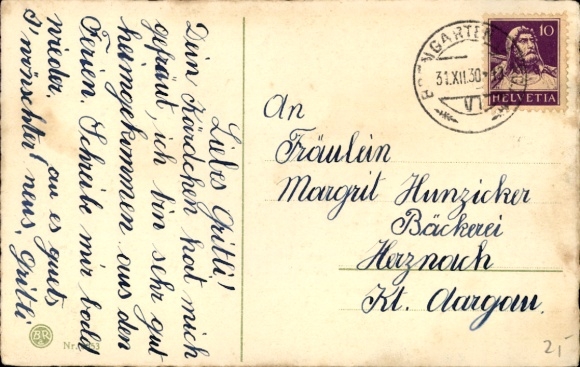 Liebs Gritli!
Dein Kärtchen hat mich
gefräut, ich bin sehr gut
heimgekommen aus den
Ferien. Schreibe mir bald
wieder.
I wönschter au es guets
neus, Gritli
BR
Nr.
31.XII.30
10
HELVETIA
An
Fräulein
Margrit Hunzicker
Bäckerei
Herznach
Kt. Aargau.
2,-